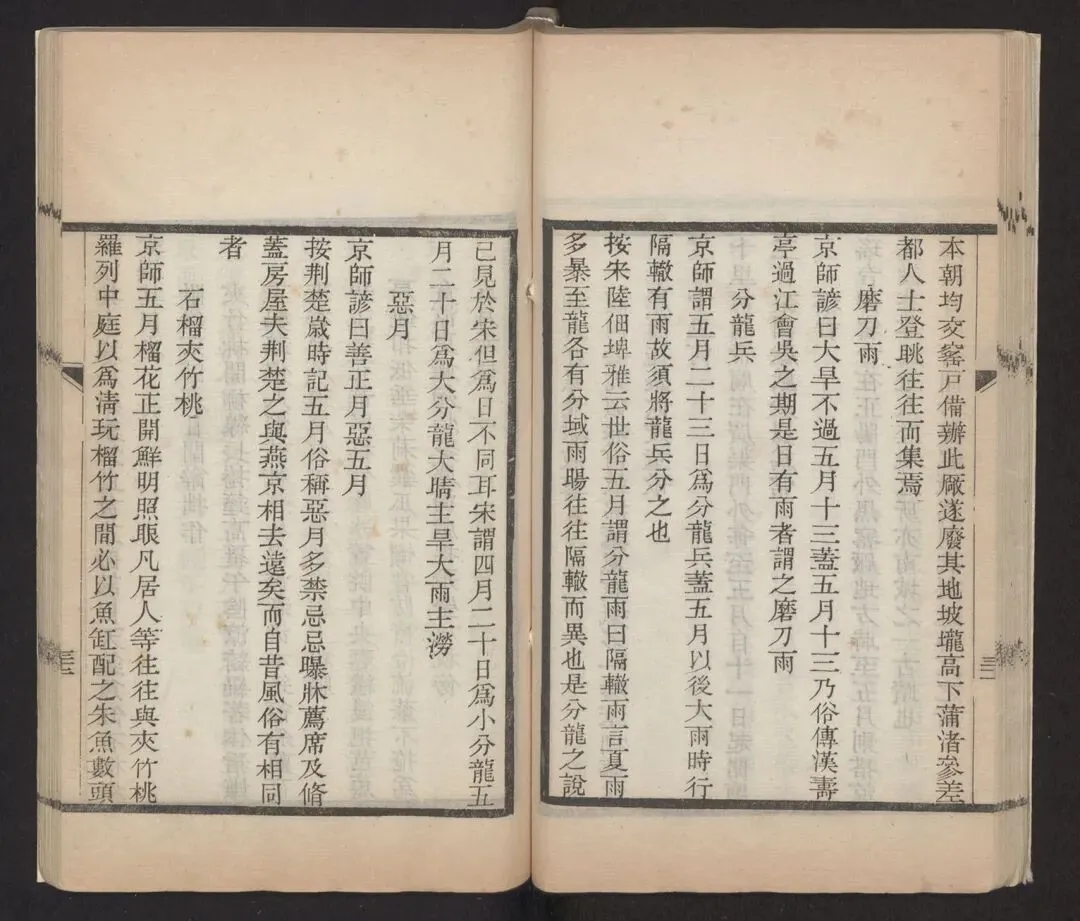 本朝均交窰戸備辦此厰遂廢其地坡壠高下蒲渚參差
都人士登眺往往而集焉
磨刀雨
京師諺曰大旱不過五月十三蓋五月十三乃俗傳漢壽
亭過江會吳之期是日有雨者謂之磨刀雨
分龍兵
京師謂五月二十三日爲分龍兵蓋五月以後大雨時行
隔轍有雨故須將龍兵分之也
按宋陸佃埤雅云世俗五月謂分龍雨曰隔轍雨言夏雨
多暴至龍各有分域雨暘往往隔轍而異也是分龍之說
已見於宋但爲日不同耳宋謂四月二十日爲小分龍五
月二十日爲大分龍大晴主旱大雨主澇
惡月
京師諺曰善正月惡五月
按荆楚歲時記五月俗稱惡月多禁忌忌曝牀薦席及脩
蓋房屋夫荆楚之與燕京相去遠矣而自昔風俗有相同
者
石榴夾竹桃
京師五月榴花正開鮮明照眼凡居人等往往與夾竹桃
羅列中庭以爲清玩榴竹之間必以魚缸配之朱魚數頭